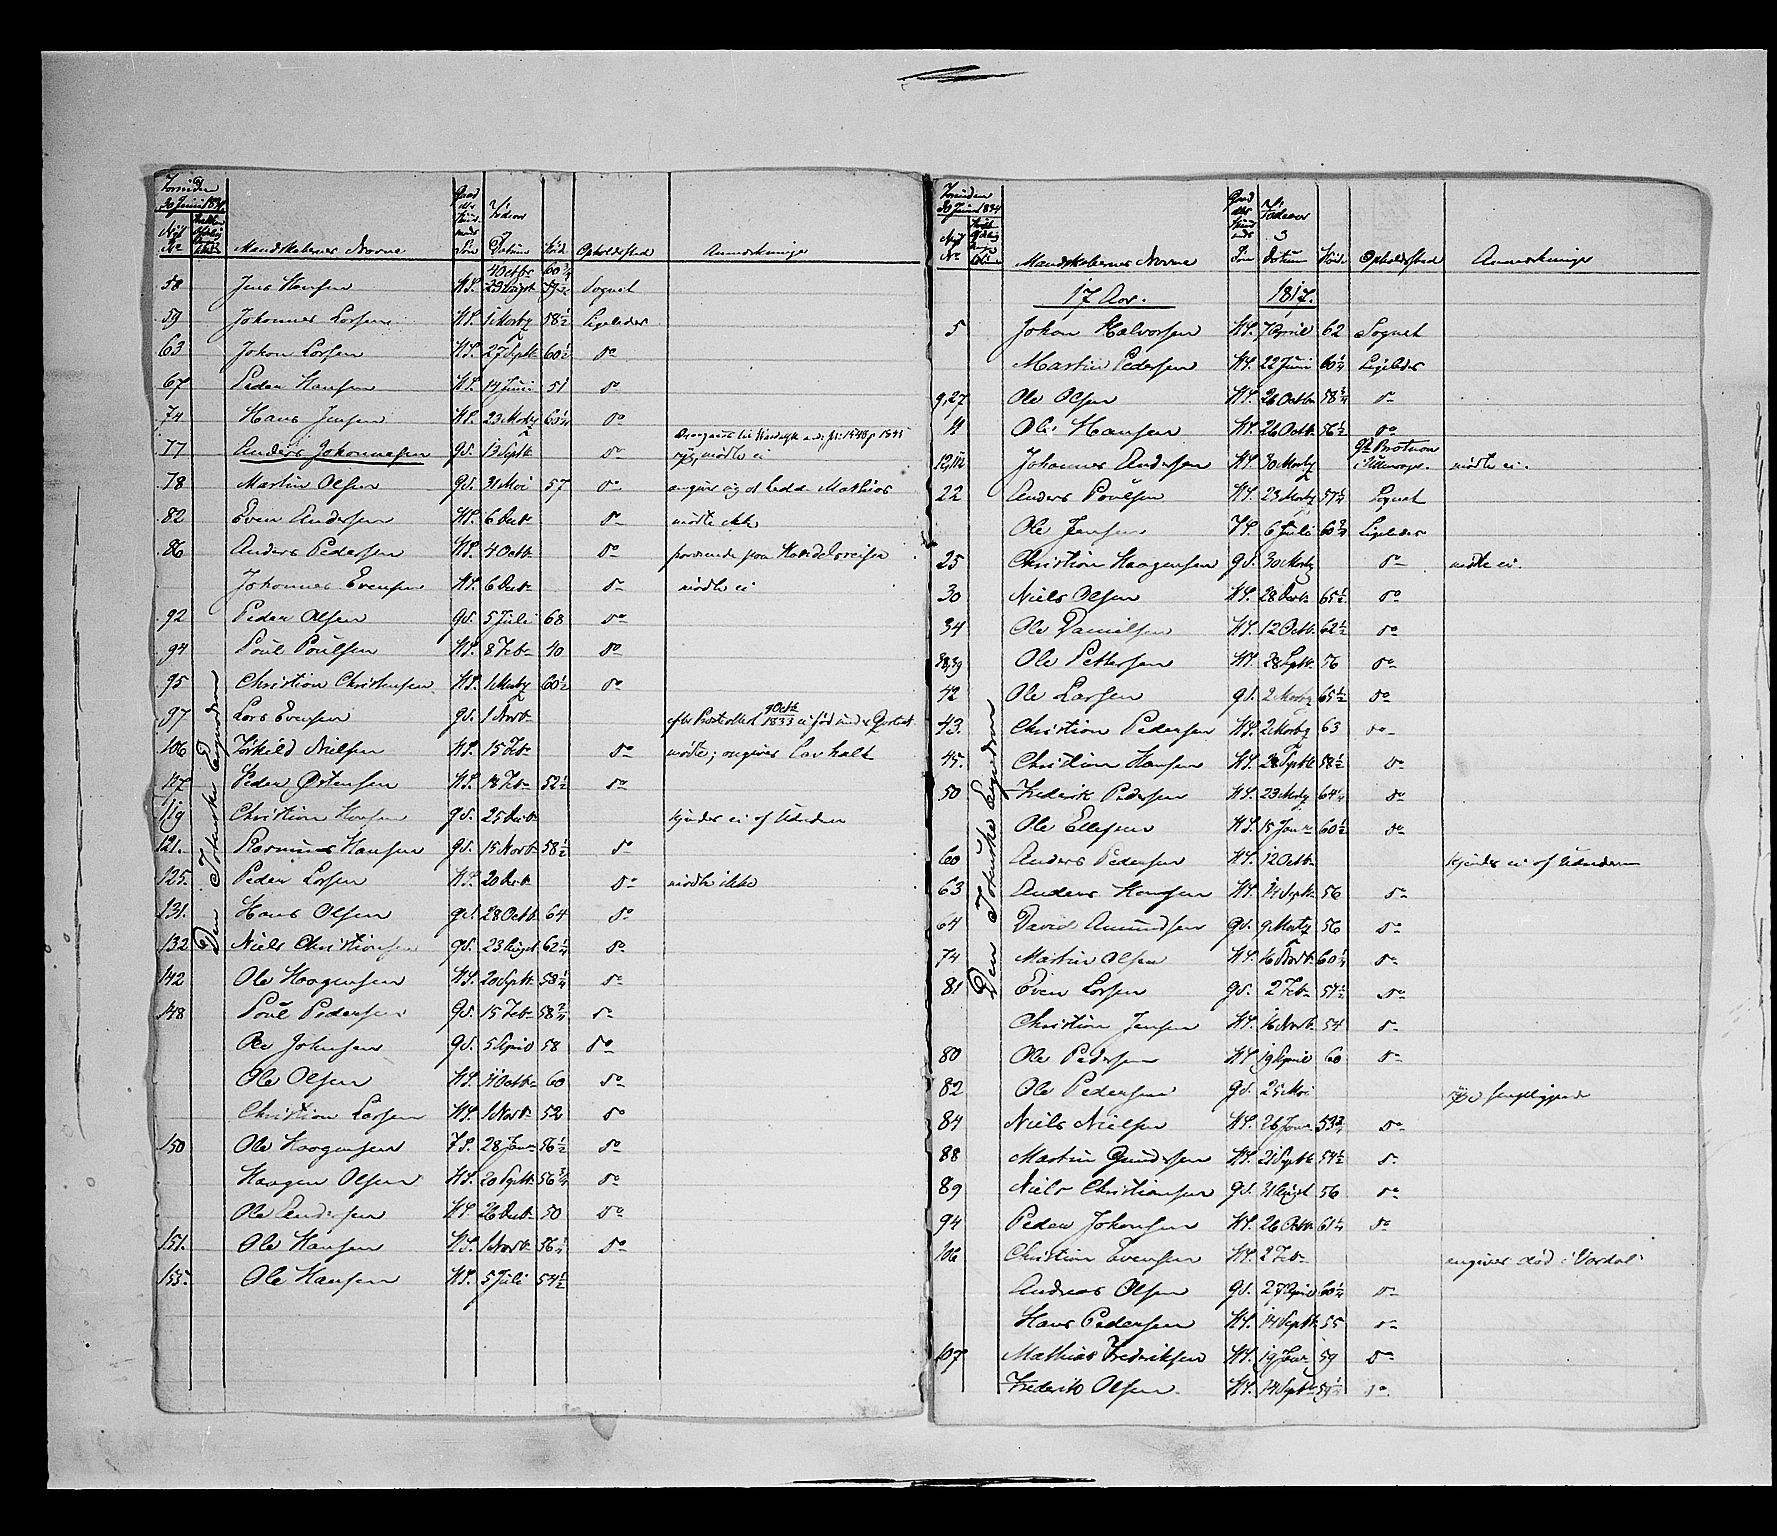 Mandskabernes Navne Datum Opholdssted Anmærkninger
4 Octbr 60 3/4
58 Jens Hansen HS. 29 August Sognet
59 Johannes Larsen HS. 1 Martz 58 1/2 Ligeledes
63 Johan Larsen HS. 27 Septbr 60 1/2 do
67 Peder Hansen HS. 14 Juni 51 do
74 Hans Jensen HS. 23 Martz do
77 Anders Johannesen gS. 13 Septbr do mødte ei
78 Martin Olsen gS. 31 Mai 57 do angives og at hedde Mathias
82 Even Andersen HS. 6 Decbr do mødte ikke
86 Anders Pedersen HS. 4 Octbr do fraværende paa Handelsreise
Johannes Evensen HS. 6 Decbr do mødte ei
92 Peder Olsen gS. 5 Juli 68 do
94 Poul Poulsen HS. 8 Febr 40 do
95 Christian Christensen HS. 1 Martz 60 1/2 do
97 Lars Evensen gS. 1 Novbr
106 Torkild Nielsen HS. 15 Febr do mødte; angives Lav halt
117 Peder Østensen HS. 18 Febr 52 1/2 do
119 Christian Hansen gS. 25 Decbr kjendes ei af Almuen
121. Rasmus Hansen gS. 15 Novbr 58 1/2 do
125. Peder Larsen HS. 20 Decbr do mødte ikke
131. Hans Olsen gS. 28 Octbr 64 do
132 Niels Christiansen gS. 23 August 62 1/4 do
142 Ole Haagensen HS. 20 Septbr 58 1/4 do
148 Poul Pedersen gS. 15 Febr 58 3/4 do
Ole Johnsen gS. 5 April 58 do
Ole Olsen HS. 11 Octbr 60 do
Christian Larsen HS. 1 Novbr 52 do
150 Ole Haagensen FS. 28 Janr 56 1/2 do
Haagen Olsen HS. 20 Septbr 56 3/4 do
Ole Andersen HS. 26 Decbr 50 do
151. Ole Hansen HS. 1 Novbr 56 1/4 do
155. Ole Hansen HS. 5 Juli 54 1/2
Mandskabernes Navne Datum Opholdssted Anmærkninger
17 Aar. 1817.
5 Johan Halvorsen HS. 7 April 62 Sognet
Martin Pedersen HS. 22 Juni 60 1/4 Ligeledes
9,27 Ole Olsen HS. 26 Octbr 58 3/4 do
11 Ole Hansen HS. 26 Octbr 56 1/2 do
Johannes Andersen HS. 30 Martz mødte ei.
22 Anders Poulsen HS. 23 Martz 57 1/4 Sognet
Ole Jensen FS. 6 Juli 60 3/4 Ligeledes
25 Christian Haagensen gS. 30 Martz do mødte ei.
30 Niels Olsen HS. 28 Decbr 65 1/2 do
34 Ole Danielsen HS. 12 Octbr 62 1/2 do
38,39 Ole Pettersen HS. 28 Septbr 56 do
42 Ole Larsen gS. 2 Martz 65 1/2 do
43. Christian Pedersen HS. 2 Martz 63 do
45. Christian Hansen HS. 28 Septbr 58 1/2 do
50 Frederik Pedersen HS. 23 Martz 64 1/4 do
Ole Ellefsen HS. 15 Janr 60 1/2 do
60 Anders Pedersen HS. 12 Octbr kjendes ei af Almuen
63 Anders Hansen HS. 14 Septbr 56 do
64 David Amundsen gS. 9 Martz 56 do
74 Martin Olsen HS. 16 Novbr 60 1/4 do
81 Even Larsen gS. 2 Febr 57 1/2 do
Christian Jensen HS. 16 Novbr 54 do
80 Ole Pedersen HS. 19 April 60 do
82 Ole Pedersen gS. 25 Mai
84 Niels Nielsen HS. 26 Janr 53 3/4 do
88 Martin Gundersen HS. 21 Septbr 54 1/2 do
89 Niels Christiansen gS. 31 August 56 do
94 Peder Johansen HS. 26 Octbr 61 1/4 do
106 Christian Evensen HS. 2 Febr angives død i Vardal
Andreas Olsen gS. 27 April 60 1/4 do
Hans Pedersen HS. 14 Septbr 55 do
107 Mathias Fredriksen HS. 19 Janr 59 do
Frederik Olsen HS. 14 Septbr do